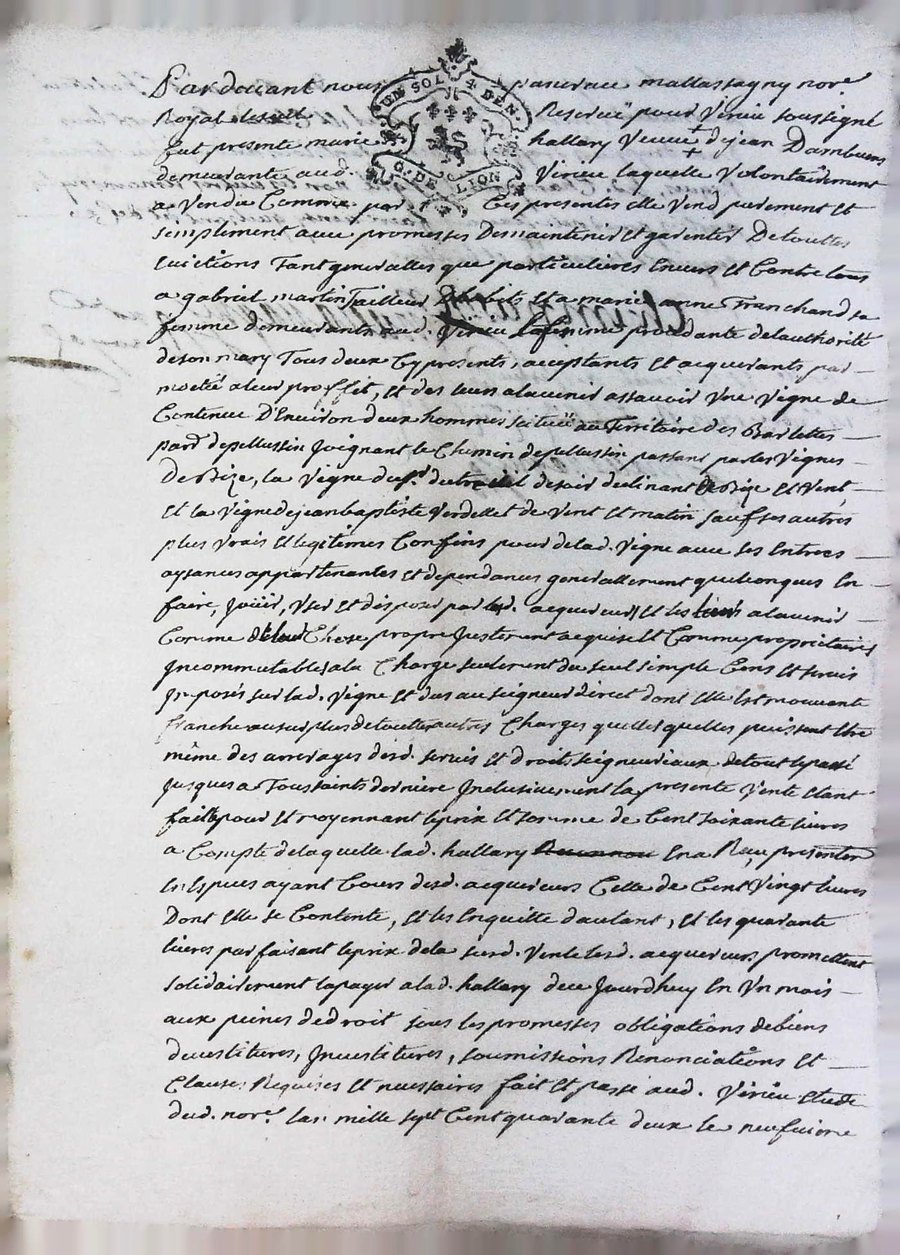 Pardevant nous pancrace mallassagny nore.
Royal Reservé pour Virieu soussigné
fut presente marie hallary Veuve de jean Dambuens
UN SOL 4 DEN.
G. DE LION
demeurante aud. Virieu laquelle Volontairement
a Vendu Comme par Ces presentes elle Vend purement Et
simplement avec promesses De maintenir Et garentir De touttes
Evictions Tant generalles que particulieres Envers Et Contre tous
a gabriel martin Tailleur D'habits Et a marie anne Franchand sa
femme demeurants aud. Virieu Lafemme procédante de lauthorité
de son mary Tous deux Cy presents, acceptants Et acquerants par
moetié a leur proffit, Et des leurs alavenir assavoir Une Vigne de
Contenue D'Environ deux hommes scituée au Territoire des Barlettes
parr. depellussin Joignant le Chemin depellussin passant par les Vignes
De Bize, la Vigne du declinant Bize Et Vent
Et la Vigne de jean baptiste Verdellet de Vent Et matin sauf ses autres
plus Vrais Et legitimes Confins pour delad. Vigne avec ses Entrees
aysances appartenantes Et dependances generallement quelconques En
faire, Jouir, User Et disposer par lesd. acquereurs Et les leurs alavenir
Comme de leur Chose propre Justement acquise Et Comme propriétaires
Incommutables ala Charge seulement du seul simple Cens Et servis
Imposés sur lad. Vigne Et dus au seigneur direct dont Elle Est mouvante
franche au surplus de toutes autres Charges quelles quelles puissent Etre
même des arrerages desd. servis Et droits seigneuriaux de tout le passé
Jusques a Toussaints derniere Inclusivement la presente Vente Etant
faitte pour Et moyennant le prix Et somme de Cent soixante livres
a Compte de laquelle lad. hallary En a Reçu presentem.
En Especes ayant Cours desd. acquereurs Celle de Cent Vingt livres
Dont Elle se Contente, Et les En quitte d'autant, Et les quarante
livres parfaisant le prix de la susd. Vente lesd. acquereurs promettent
solidairement la payer a lad. hallary de ce Jourdhuy En Un mois
aux peines de droit sous les promesses obligations de biens
devestitures, Investitures, soumissions Renonciations Et
Clauses Requises Et necessaires fait Et passé aud. Virieu Etude
dud. nore. lan mille sept Cent quarante deux le neufvieme